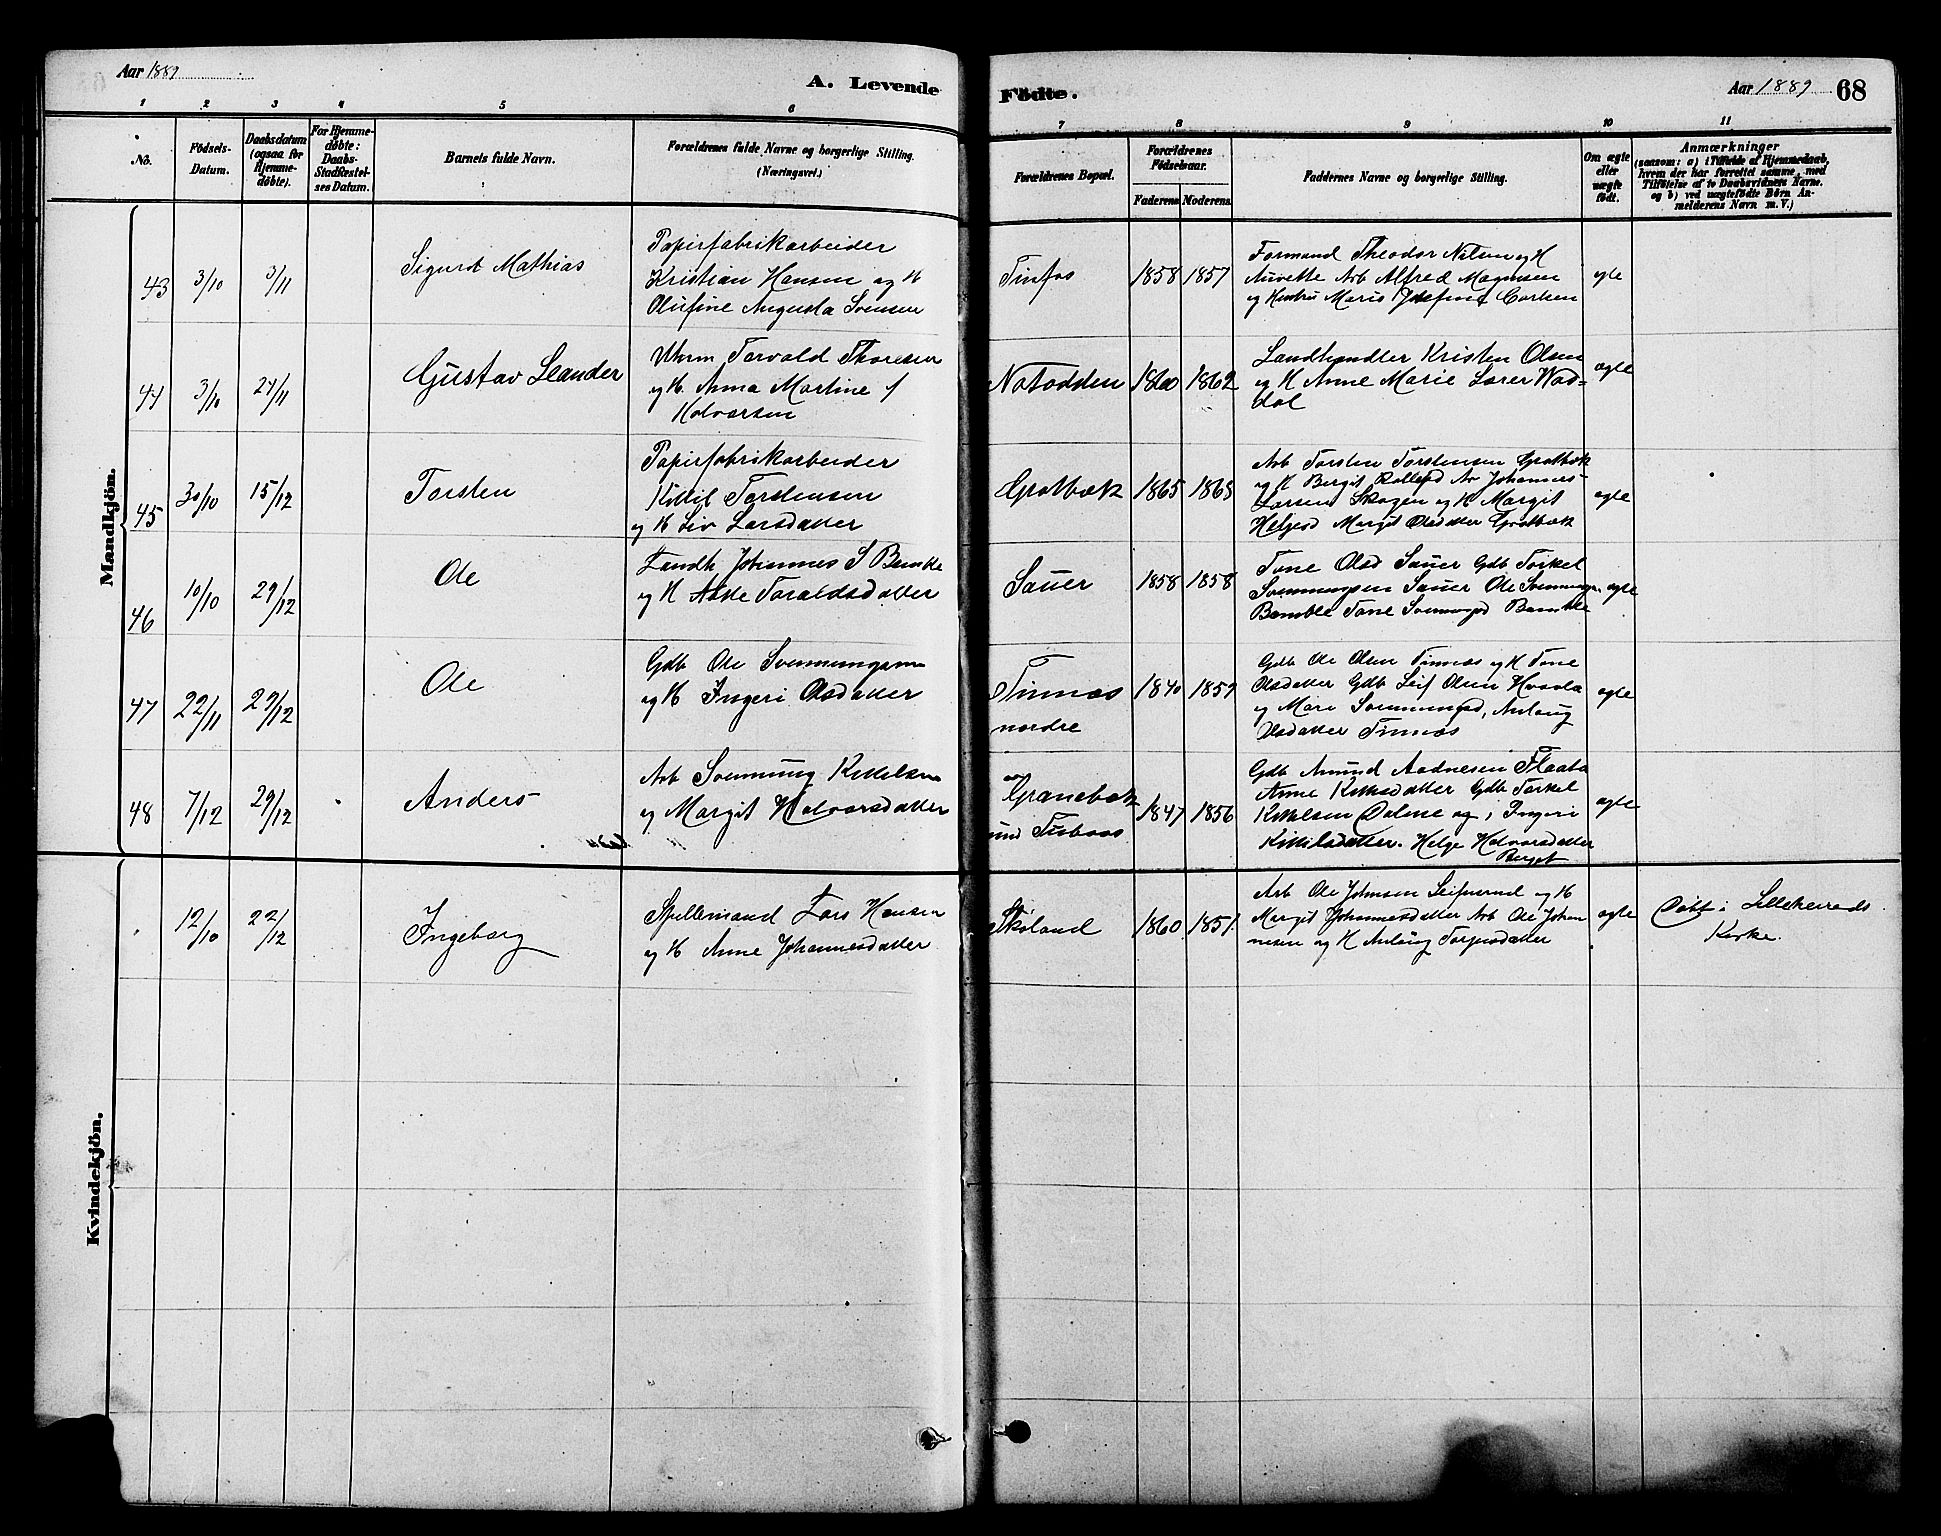 Aar 1889
A. Levende
Fødte.
Aar 1889
68
1 2 3 4 5 6 7 8 9 10 11
No.
Födsels-Datum.
Daabsdatum (ogsaa for Hjemmedöbte).
For Hjemmedöbte: Daabs-Stadfæstelses Datum.
Barnets fulde Navn.
Forældrenes fulde Navne og borgerlige Stilling.
(Næringsvei.)
Forældrenes Bopæl.
Forældrenes Födselsaar.
Faderens Moderens
Faddernes Navne og borgerlige Stilling.
Om ægte eller uægte født.
Anmærkninger
(saasom: a) i Tilfælde af Hjemmedaab,
hvem der har forrettet samme, med
Tilföielse af to Daabsvidners Navne.
og b) ved uægtefödte Börn An-
melderens Navn m. V.)
Mandkjön.
43 3/10 3/11 Sigurd Mathias
Papirfabrikarbeider
Kristian Hansen og H
Olufine Augusta Svensen
Tinfos 1858 1857
Formand Theodor Nilsen og H
Arb Alfred Magnusen
og Hustru Josefine Carlsen
ægte
44 3/10 24/11 Gustav Leander
Torvald Thoresen
og H. Anna Martine
Halvorsen
Notodden 1860 1862
Landhandler Kristen Olsen
og H Anne Marie Lærer Waa-
dal
ægte
45 30/10 15/12 Torsten
Papirfabrikarbeider
Kittil Torstensen
og H Liv Larsdatter
Grotbæk 1865 1863
Arb Torsten Torstensen Grotbæk
og H Bergit Johannes
Larsen Skogen og H Margit
Heljesd Margit Olsdatter Grotbæk
ægte
46 10/10 29/12 Ole
Landh Johannes S Bamble
og H Aase Toraldsdatter
Sauer 1858 1858
Tone Olsd Sauer Gdb Torkel
Svenningsen Sauer Ole
Bamble Tone Svenningsd Bamble
ægte
47 22/11 29/12 Ole
Gdb Ole Svennungsen
og H Ingeri Olsdatter
Tinnæs
nordre
1840 1859
Gdb Ole Olsen Tinnæs og H Tone
Olsdatter Gdb Leif Olsen Hvaala
og Mari Svennungsd, Anlaug
Olsdatter Tinnæs
ægte
48 7/12 29/12 Anders
Arb Svennung Kittilsen
og Margit Halvorsdatter
Granebæk
1847 1856
Gdb Amund Aadnesen Flaata
Anne Kittilsdatter Gdb Torkel
Kittilsen og Ingeri
Kittilsdatter. Helge Halvorsdatter
Berget
ægte
Kvindekjön.
12/10 22/12 Ingeborg
Spillemand Lars Hansen
og H Anne Johannesdatter
Skoland 1860 1851
Arb Ole Johnsen og H
Margit Johannesdatter Arb Ole Johan
nesen og H Anlaug Torjusdatter
ægte
Døbt i Lilleherreds
Kirke.